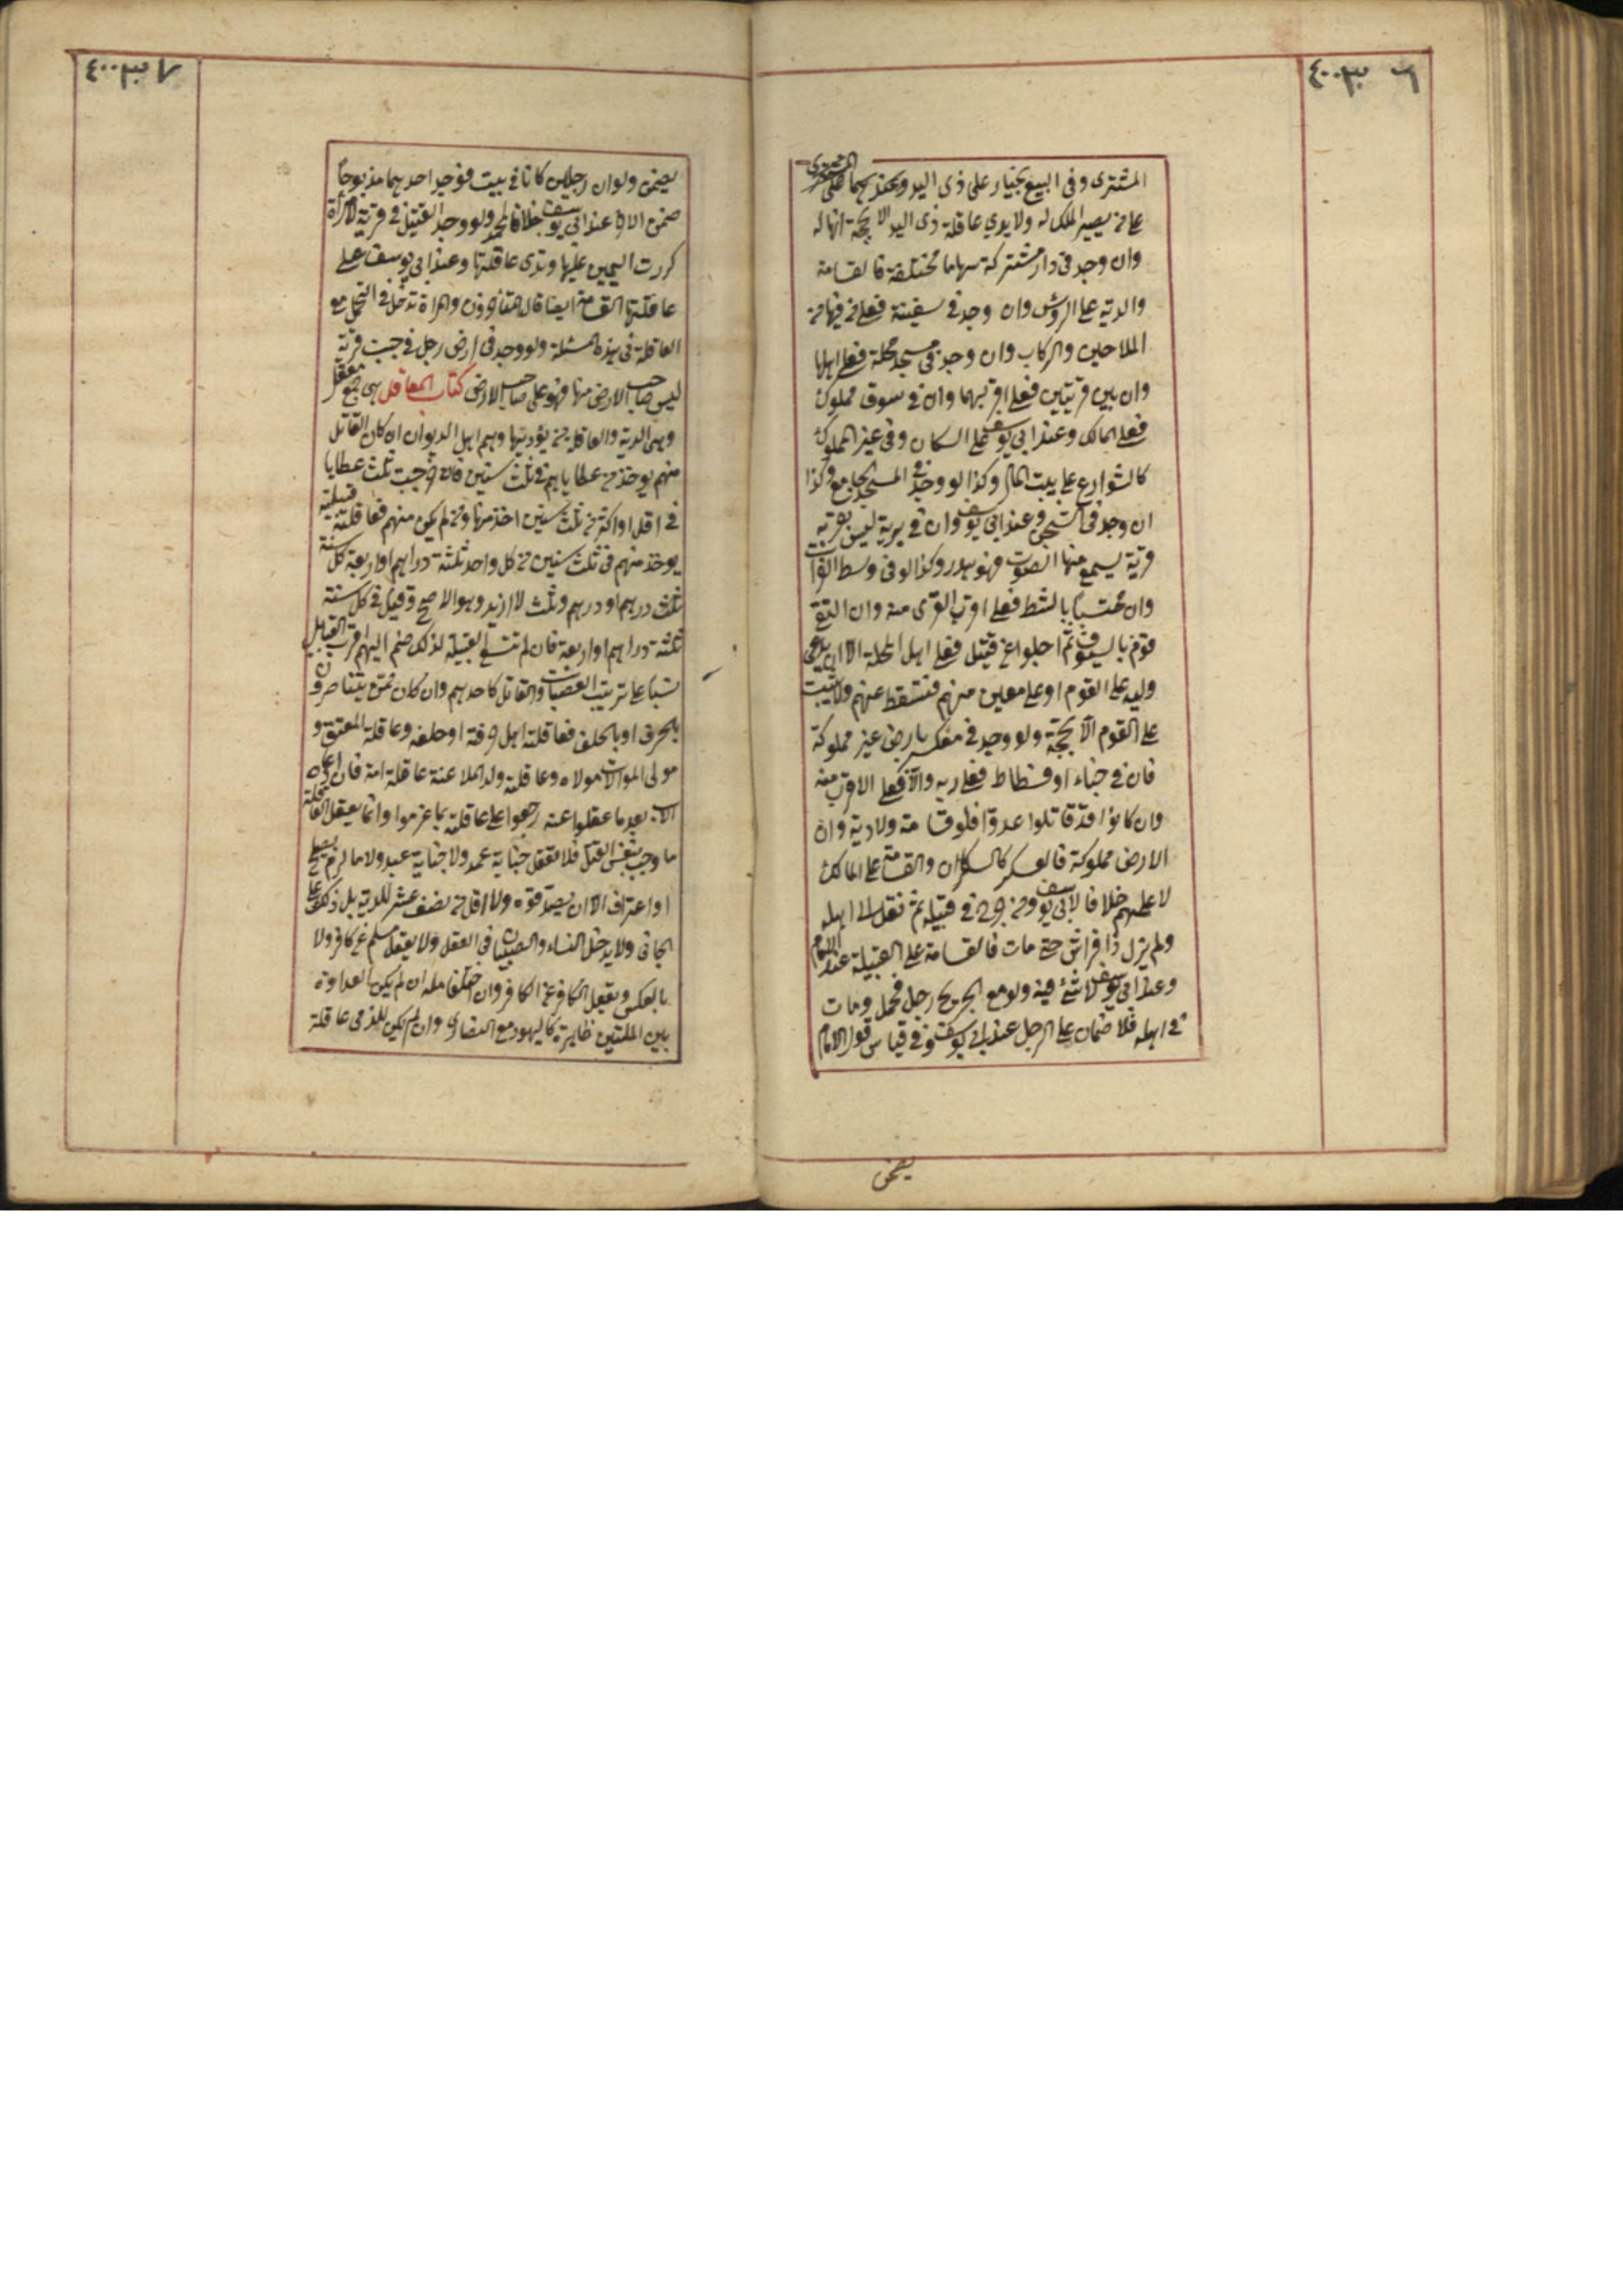 المشترى وفى البيع بخيار على ذى اليد وعندهما على
على من يصير الملك له ولا يدي عاقلة ذى اليد الا بحجة انها له
وان وجد فى دار مشتركة سهاما مختلفة فالقسامة
والدية على الرؤس وان وجد فى سفينة فعلى من فيها من
الملاحين والركاب وان وجد فى مسجد محلة فعلى اهلها
وان بين قريتين فعلى اقربهما وان فى سوق مملوك
فعلى المالك وعند ابى يوسف على السكان وفى غير المملوك
كالشوارع على بيت المال وكذا لو وجد فى المسجد الجامع وكذا
ان وجد فى السجن وعند ابى يوسف وان فى برية ليس بقربه
قرية يسمع منها الصوت فهو هدر وكذا لو فى وسط الفرات
وان محتبسا بالشط فعلى اقرب القرى منه وان التقى
قوم بالسيوف ثم اجلوا عن قتيل فعلى اهل المحلة الا ان يدعى
وليه على القوم او على معين منهم فتسقط عنهم ولا تثبت
على القوم الا بحجة ولو وجد فى معسكر بارض غير مملوكة
فان فى خباء او فسطاط فعلى ربه والا فعلى الاقرب منه
وان كانوا قد قاتلوا عدوا فلا قسامة ولا دية وان
الارض مملوكة فالعسكر كالسكان والقسامة على المالك
لا عليهم خلافا لابى يوسف ومن جرح فى قبيلة ثم نقل الى اهله
ولم يزل ذا فراش حتى مات فالقسامة على القبيلة عند الامام
وعند ابى يوسف لا شئ فيه ولو مع الجريح رجل فحمله ومات
فى اهله فلا ضمان على الرجل عند ابى يوسف وفى قياس قول الامام
يضمن
يضمن ولو ان رجلين كانا فى بيت فوجد احدهما مذبوحا
ضمن الاخر عند ابى يوسف خلافا لمحمد ولو وجد القتيل فى قرية لامرأة
كررت اليمين عليها وتدى عاقلتها وعند ابى يوسف على
عاقلتها القسامة ايضا قال المتأخرون والمراة تدخل فى التحمل مع
العاقلة فى هذه المسئلة ولو وجد فى ارض رجل فى جنب قرية
ليس صاحب الارض منها فهو على صاحب الارض كتاب المعاقل هى جمع معقل
وهى الدية والعاقلة من يؤديها وهم اهل الديوان ان كان القاتل
منهم يوخذ من عطاياهم فى ثلث سنين فان خرجت ثلث عطايا
فى اقل او اكثر من ثلث سنين اخذ منها ومن لم يكن منهم فعاقلته قبيلته
يوخذ منهم فى ثلث سنين من كل واحد ثلثة دراهم او اربعة كل سنة
ثلث درهم او درهم وثلث لا ازيد وهو الاصح وقيل فى كل سنة
ثلثة دراهم او اربعة فان لم تتسع القبيلة لذلك ضم اليهم اقرب القبايل
نسبا على ترتيب العصبات والقاتل كاحدهم وان كان ممن يتناصرون
بالحرف او بالحلف فعاقلته اهل حرفته او حلفه وعاقلة المعتق و
مولى الموالات مولاه وعاقلته وولد الملاعنة عاقلة امه فان ادعاه
الاب بعد ما عقلوا عنه رجعوا على عاقلته بما غرموا وانما يعقل العاقلة
ما وجب بنفس القتل فلا تعقل جناية عمد ولا جناية عبد ولا ما لزم بصلح
او اعتراف الا ان يصدقوه ولا اقل من نصف عشر الدية بل ذلك على
الجانى ولا يدخل النساء والصبيان فى العقل ولا يعقل مسلم عن كافر ولا
بالعكس ويعقل الكافر عن الكافر وان اختلفا ملة ان لم يكن العداوة
بين الملتين ظاهرة كاليهود مع النصارى وان لم يكن للذمى عاقلة